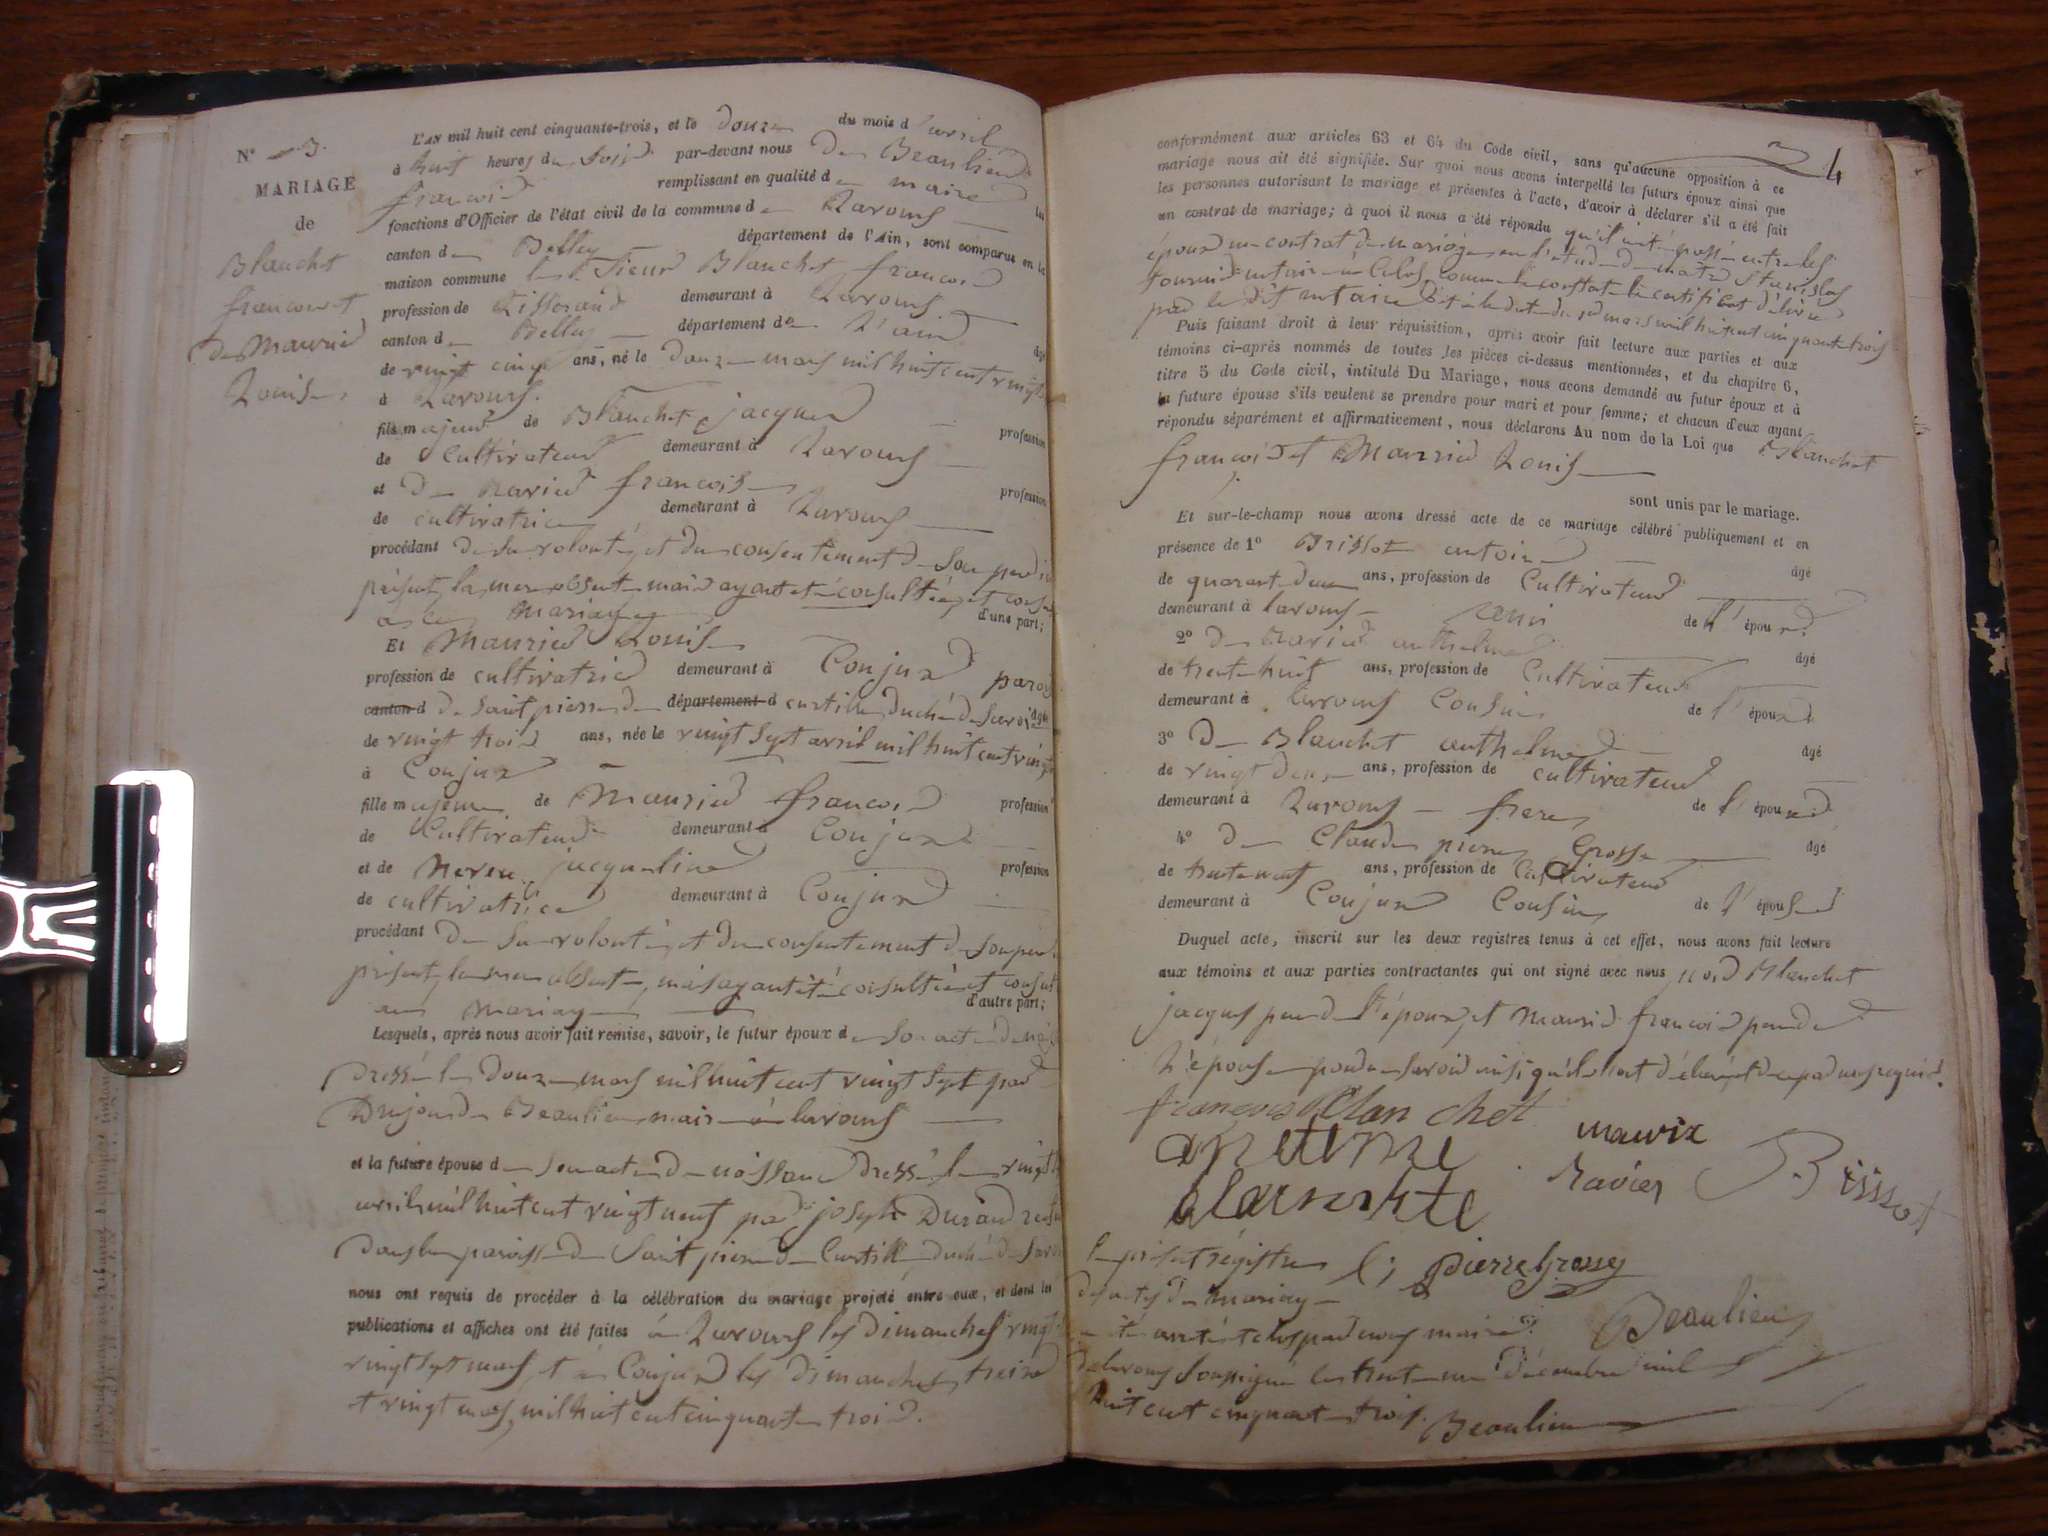 N° 3.
MARIAGE
de
Blanchet
francois et
de Maurier
Louise
L'AN mil huit cent cinquante-trois, et le douze du mois d'avril
à huit heures du soir par-devant nous De Beaulieu
francois remplissant en qualité de maire les
fonctions d'Officier de l'état civil de la commune de Lavours
canton de Belley département de l'Ain, sont comparus en la
maison commune le Sieur Blanchet francois
profession de Tisserand demeurant à Lavours
canton de Belley département de L'ain âgé
de vingt cinq ans, né le douze mars mil huit cent vingt
à Lavours.
fils majeur de Blanchet jacques profession
de Cultivateur demeurant à Lavours
et De Navier francoise profession
de cultivatrice demeurant à Lavours
procédant de sa volonté, et du consentement de son père
présent, la mere absente mais ayant eté consultée, et consent
à ce mariage d'une part;
Et Maurier Louise
profession de cultivatrice demeurant à Conjux parois
canton d De Saint pierre de département d curtille duché de Savoie âgée
de vingt trois ans, née le vingt sept avril mil huit cent vingt
à Conjux
fille majeure de Maurier francois profession
de Cultivateur demeurant à Conjux
et de jacqueline profession
de cultivatrice demeurant à Conjux
procédant De sa volonté, et du consentement de son père
présent, la mere absente, mais ayant eté consultée et consent
au Mariage d'autre part;
Lesquels, après nous avoir fait remise, savoir, le futur époux de son acte de
Dressé le douze mars mil huit cent vingt sept par
Dujour de Beaulieu maire à lavours
et la future épouse de son acte de naissance Dressé le vingt
avril mil huit cent vingt neuf par joseph Durand
dans la paroisse de Saint pierre de Curtille duché de Savoie
nous ont requis de procéder à la célébration du mariage projeté entre eux, et dont les
publications et affiches ont été faites à Lavours les Dimanches vingt
vingt sept mars, et à Conjux les dimanches treize
et vingt mars, mil huit cent cinquante trois.
4
conformément aux articles 63 et 64 du Code civil, sans qu'aucune opposition à ce
mariage nous ait été signifiée. Sur quoi nous avons interpellé les futurs époux ainsi que
les personnes autorisant le mariage et présentes à l'acte, d'avoir à déclarer s'il a été fait
un contrat de mariage; à quoi il nous a été répondu qu'il a été passé entre les
époux un contrat de mariage en l'etude de maître Stanislas
notaire à Culoz, comme le constate le certificat délivré
par le dit notaire à la date du mars mil huit cent cinquante trois
Puis faisant droit à leur réquisition, après avoir fait lecture aux parties et aux
témoins ci-après nommés de toutes les pièces ci-dessus mentionnées, et du chapitre 6,
titre 5 du Code civil, intitulé Du Mariage, nous avons demandé au futur époux et à
la future épouse s'ils veulent se prendre pour mari et pour femme; et chacun d'eux ayant
répondu séparément et affirmativement, nous déclarons Au nom de la Loi que Blanchet
françois et Maurier Louise
sont unis par le mariage.
Et sur-le-champ nous avons dressé acte de ce mariage célébré publiquement et en
présence de 1° Brissot antoine âgé
de quarante deux ans, profession de Cultivateur
demeurant à lavours ami de l'époux
2° De Navier anthelme âgé
de trente huit ans, profession de Cultivateur
demeurant à lavours Cousin de l'époux
3° De Blanchet anthelme âgé
de vingt deux ans, profession de cultivateur
demeurant à Lavours frere de l'époux
4° De Claude pierre Grosse âgé
de trente neuf ans, profession de Cultivateur
demeurant à Conjux Cousin de l'épouse
Duquel acte, inscrit sur les deux registres tenus à cet effet, nous avons fait lecture
aux témoins et aux parties contractantes qui ont signé avec nous non Blanchet
jacques père de l'époux, et Maurier francois père de
L'épouse pour ne savoir ainsi qu'ils l'ont déclaré de ce par nous requis.
françois Blanchet
maurix
antelme
blanchte
Ravier
Brissot
Le présent registre
pierre Grossy
des actes de mariage
a été arrêté et clos par nous maire
Beaulieu
de lavours soussigné le trente un Décembre mil
huit cent cinquante trois. Beaulieu